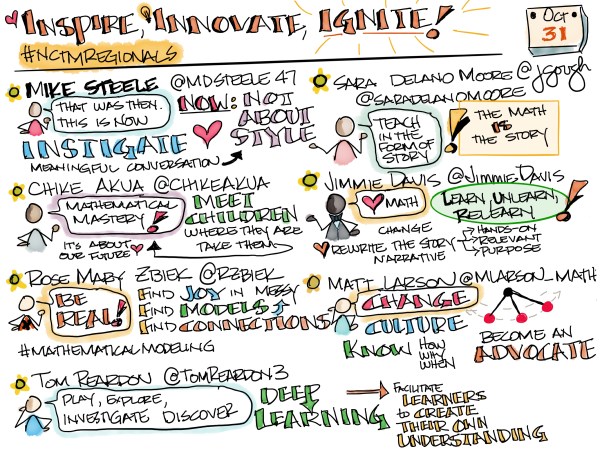 INSPIRE, INNOVATE, IGNITE!
#NCTMREGIONALS
OCT
31
@jgough
MIKE STEELE @MDSTEELE47
THAT WAS THEN.
THIS IS NOW
NOW: NOT
ABOUT
STYLE
INSTIGATE
MEANINGFUL CONVERSATION
SARA DELANO MOORE
@SARADELANOMOORE
TEACH
IN THE
FORM OF
STORY
THE MATH
IS
THE STORY
CHIKE AKUA @CHIKEAKUA
MATHEMATICAL
MASTERY!
MEET
CHILDREN
WHERE THEY ARE
TAKE THEM
IT'S ABOUT
OUR FUTURE
JIMMIE DAVIS @JIMMIEDAVIS
MATH
LEARN, UNLEARN,
RELEARN!
CHANGE
REWRITE THE STORY
NARRATIVE
HANDS-ON
RELEVANT
PURPOSE
ROSE MARY ZBIEK @RZBIEK
BE
REAL!
FIND JOY IN MESSY
FIND MODELS
FIND CONNECTIONS
#MATHEMATICALMODELING
MATT LARSON @MLARSON_MATH
CHANGE
CULTURE
KNOW HOW
WHY
WHEN
BECOME AN
ADVOCATE
TOM REARDON @TOMREARDON3
PLAY, EXPLORE,
INVESTIGATE DISCOVER
DEEP
LEARNING
FACILITATE
LEARNERS
to CREATE
THEIR OWN
UNDERSTANDING